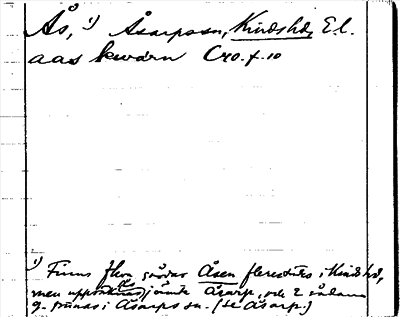 Ås, ¹) Åsarps sn, Kinds hd, El.
aas kwarn C40.f.10
¹) Finns flera gårdar Åsen flerestäds i Kinds hd,
men jämte Åsarp, och 2 sådana
g. finnas i Åsarps sn. (se Åsarp.)